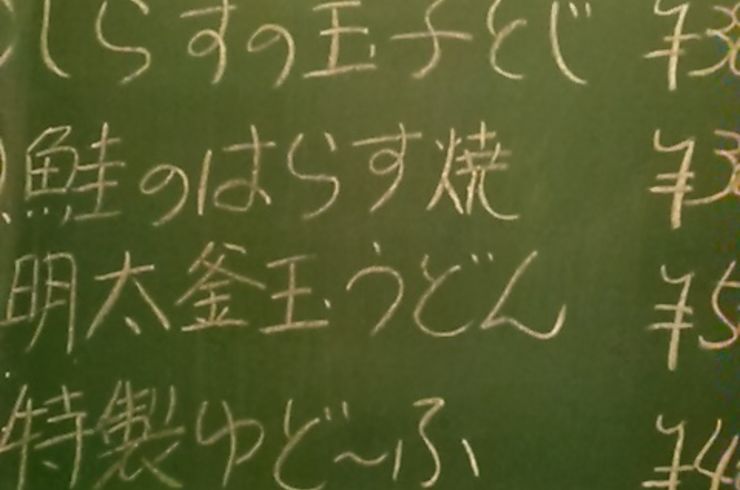 しらすの玉子とじ ¥3
鮭のはらす焼 ¥3
明太釜玉うどん ¥5
特製ゆど〜ふ ¥4